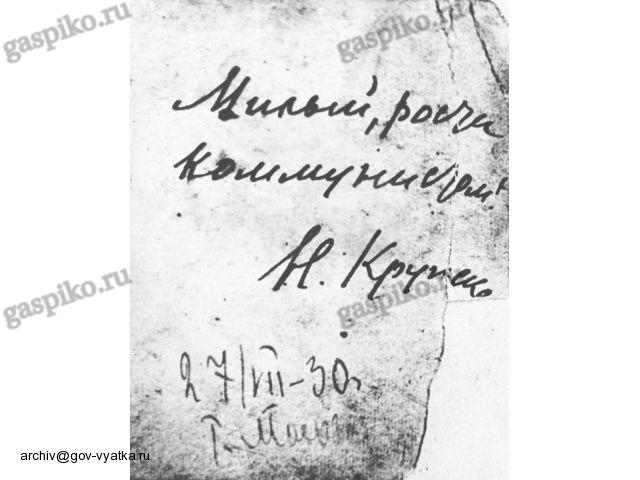 gaspiko.ru
gaspiko.ru
Милый, расти
коммунистом!
Н. Крупск
gaspiko.ru
gaspiko.ru
27/VII-30г.
archiv@gov-vyatka.ru